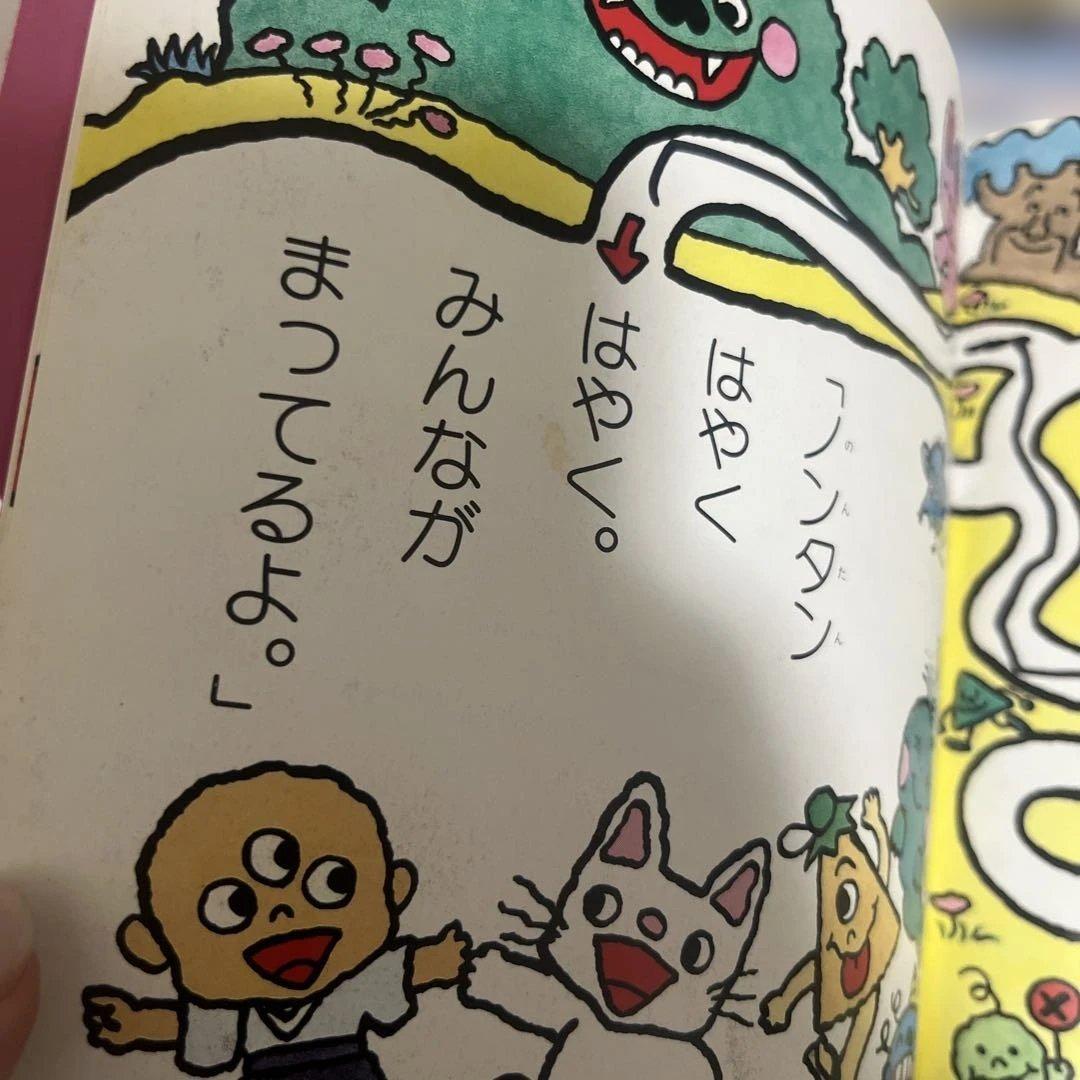 「ノンタン
のんたん
はやく
はやく。
みんなが
まってるよ。」